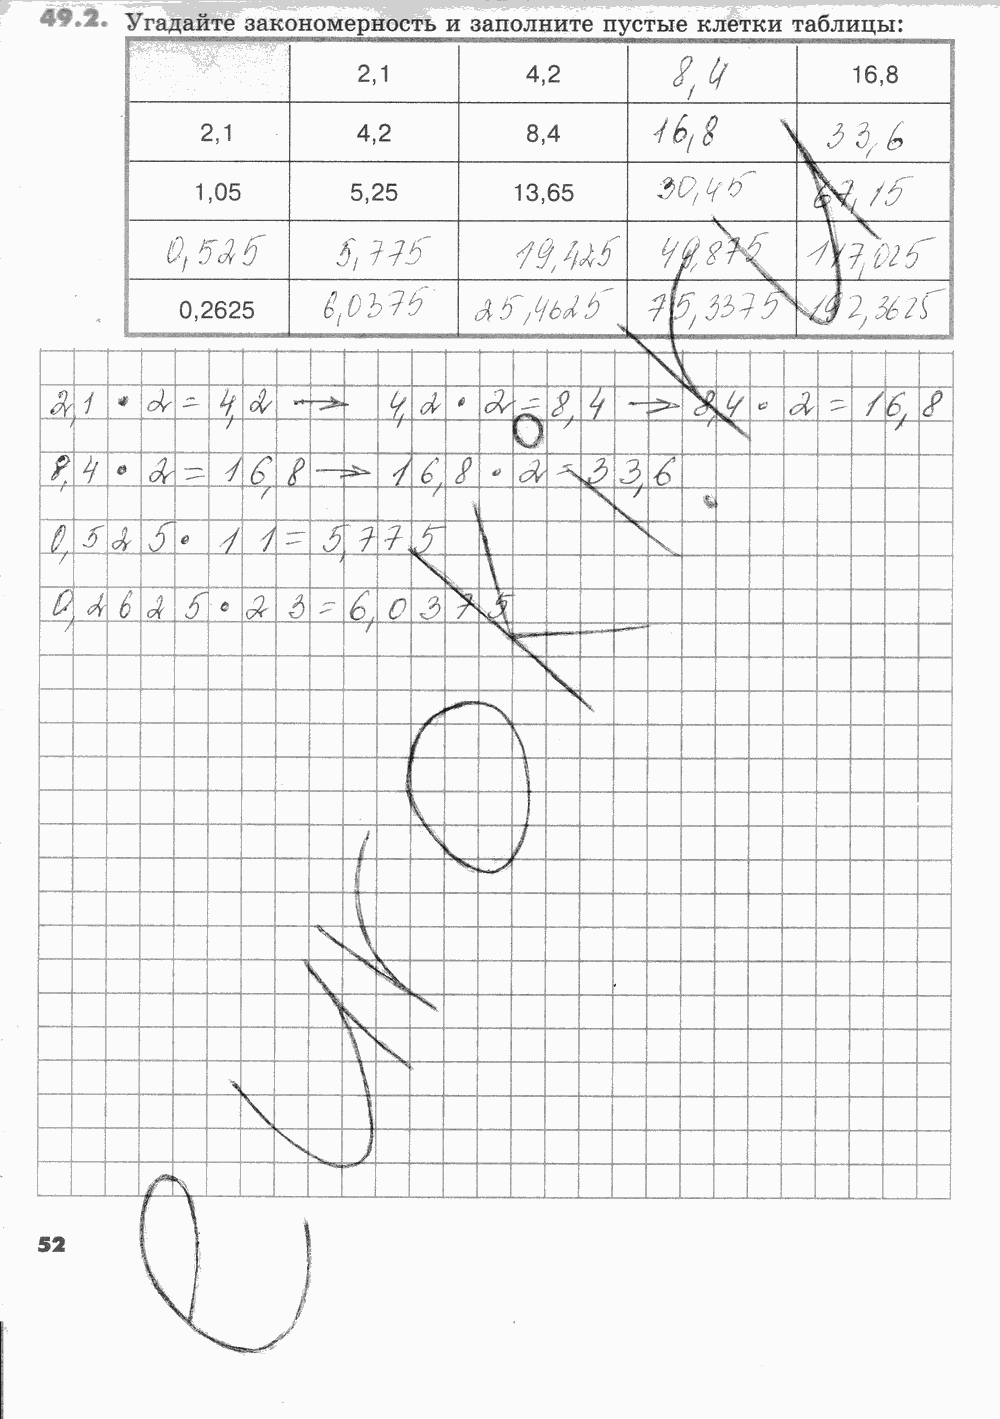 49.2. Угадайте закономерность и заполните пустые клетки таблицы:
2,1 4,2 8,4 16,8
2,1 4,2 8,4 16,8 33,6
1,05 5,25 13,65 30,45 67,15
0,525 5,775 19,425 49,875 117,025
0,2625 6,0375 25,4625 75,3375 192,3625
2,1 • 2 = 4,2 → 4,2 • 2 = 8,4 → 8,4 • 2 = 16,8
8,4 • 2 = 16,8 → 16,8 • 2 = 33,6
0,525 • 11 = 5,775
0,2625 • 23 = 6,0375
52